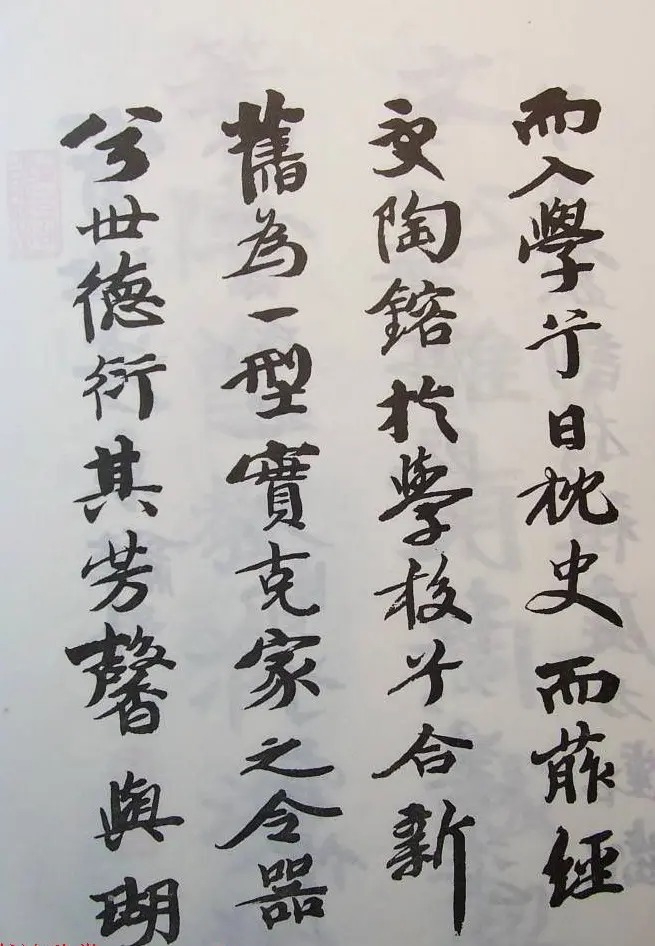 而入學兮日枕史而葄經
更陶鎔於學校兮合新
舊為一型實克家之令器
兮世德衍其芳馨與瑚